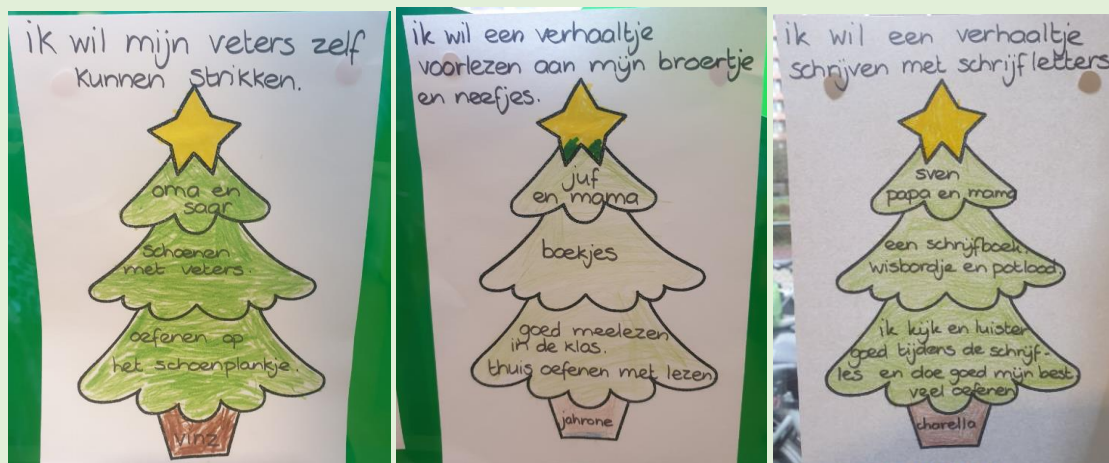 ik wil mijn veters zelf
kunnen strikken.
oma en
saar
schoenen
met veters.
oefenen op
het schoenplankje.
vinz
ik wil een verhaaltje
voorlezen aan mijn broertje
en neefjes.
juf
en mama
boekjes
goed meelezen
in de klas.
thuis oefenen met lezen
jahrone
ik wil een verhaaltje
schrijven met schrijfletters
sven
papa en mama
een schrijfboek.
wisbordje en potlood
ik kijk en luister
goed tijdens de schrijf-
les en doe goed mijn best.
veel oefenen
charella